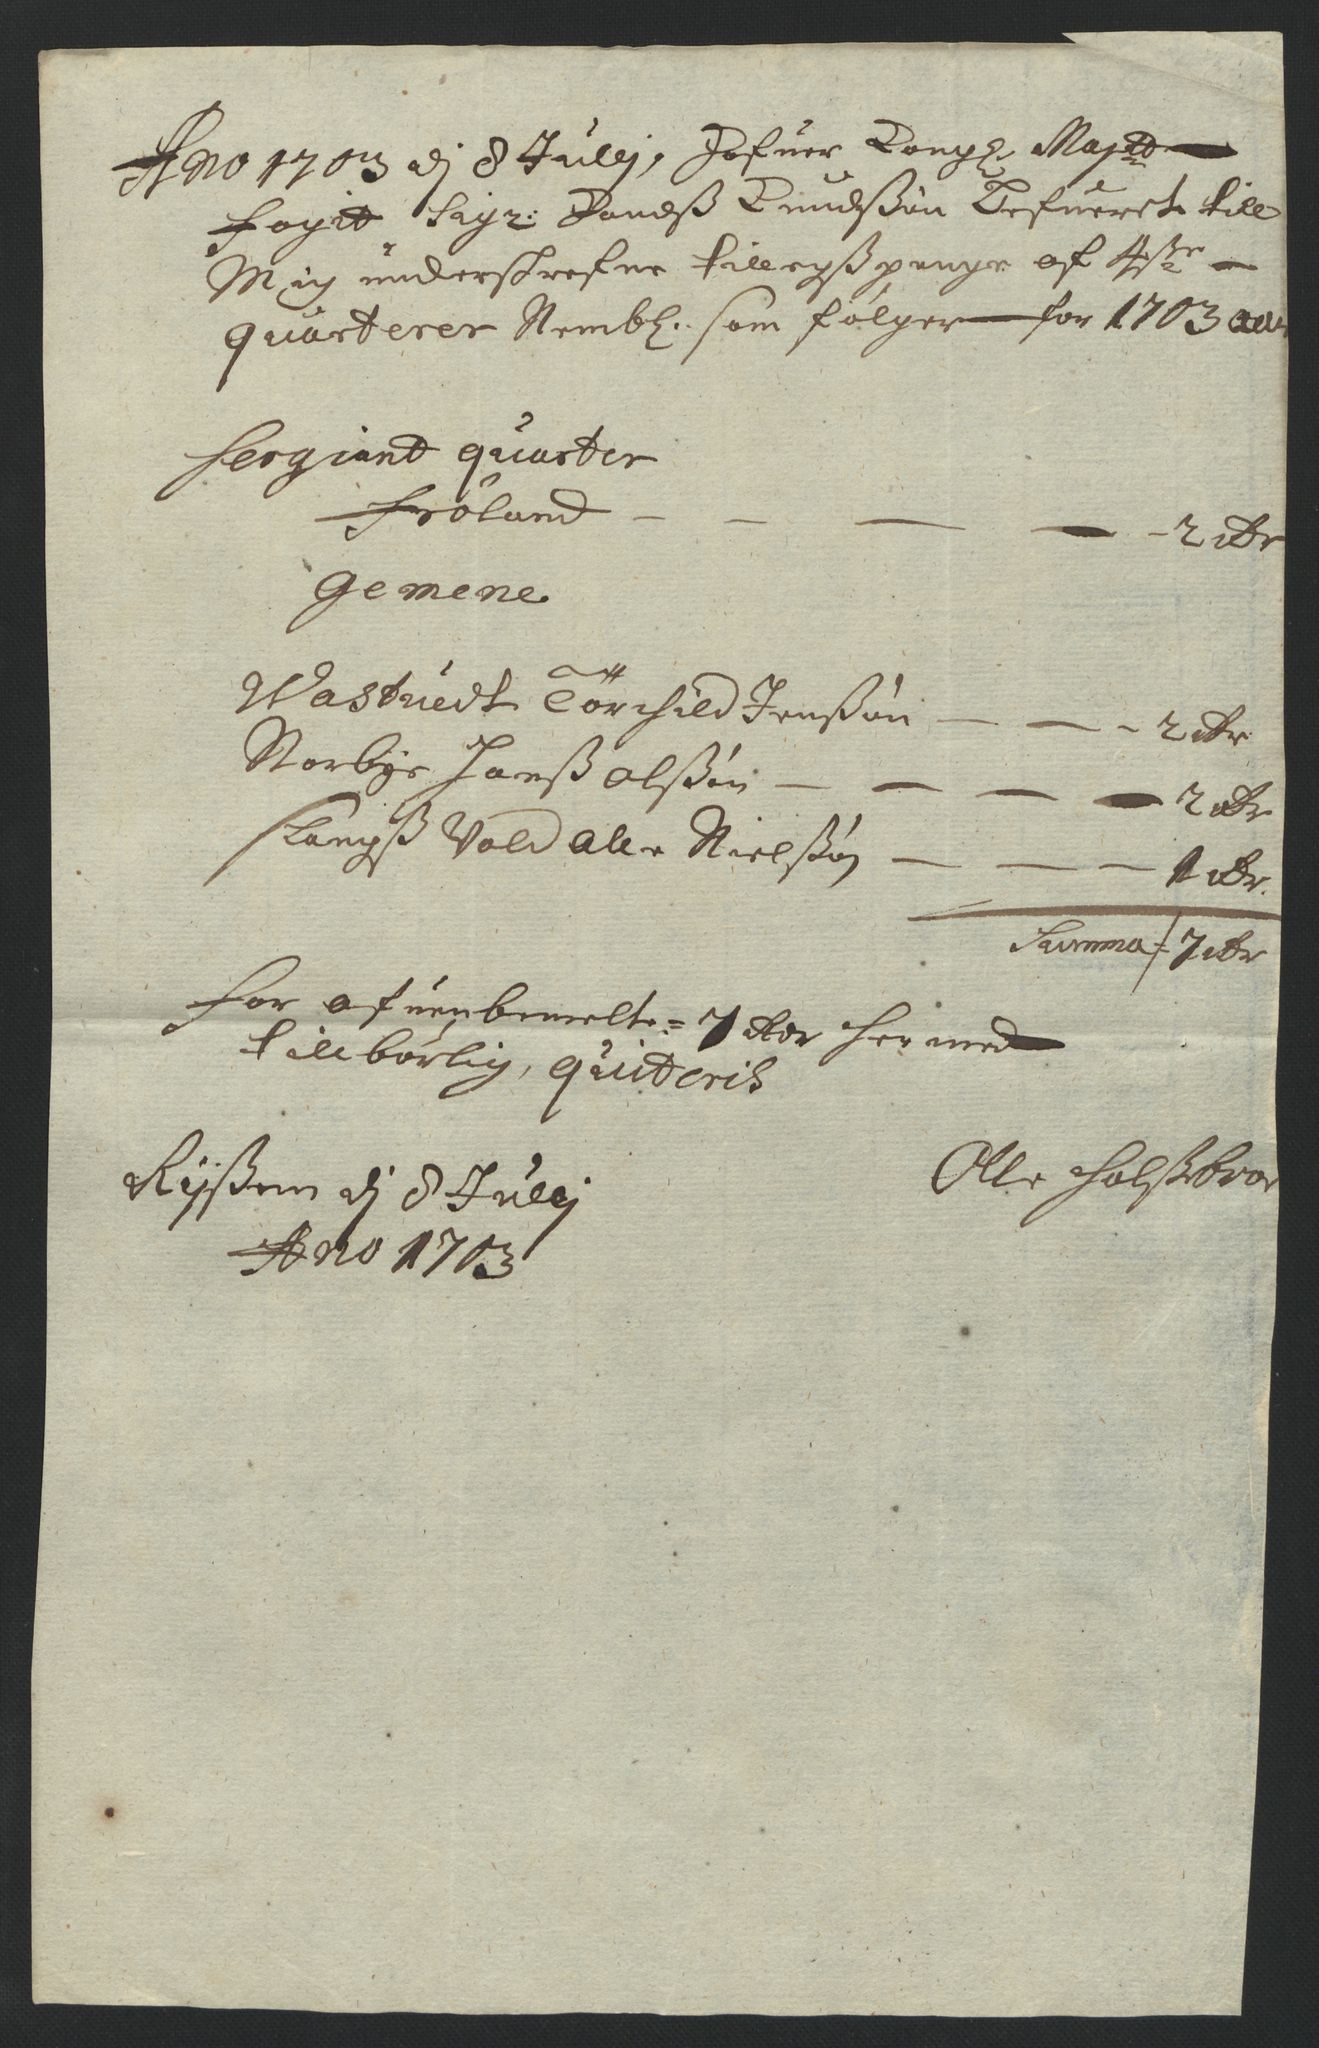 Ano 1703 dj 8 Julij, Hafuer Kongl. Maytt
Fogitt Sigr: Handß Knudßøn Lefueret till
Mig underskrefne tillegß penge af 4re
quarterer Nembl. som følger for 1703 aar
Sergiant quarter
Frøland - - - - 2 Rdr
Gemene
Wastuedt Törchild Jenßøn - - - 2 Rdr
Norbye Hanß Olßøn - - - - 2 Rdr
Slangß Vold Alle Nielßøn - - - 1 Rdr.
Summa = 7 Rdr
For afuenbemelte = 7 Rdr her med
tillbørlig, quiteris
Rijßem dj 8 Julij
Ano 1703
Olle Holstbroe